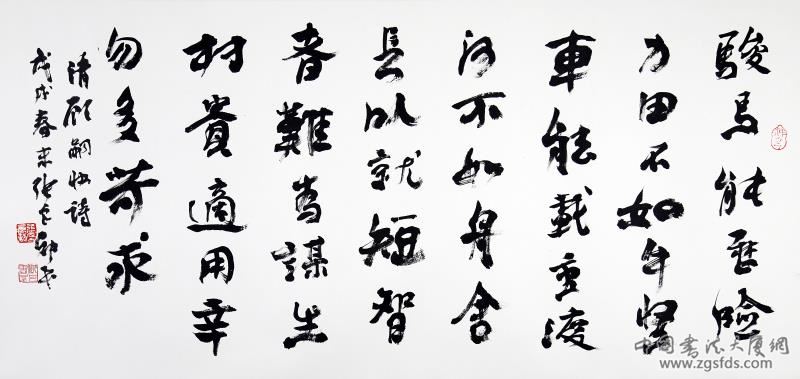 駿馬能歷險
力田不如牛堅
車能載重渡
河不如舟舍
長以就短智
者難為謀生
材貴適用幸
勿多苛求
清顧嗣協詩
戊戌春
中国书法大厦網
www.zgsfds.com